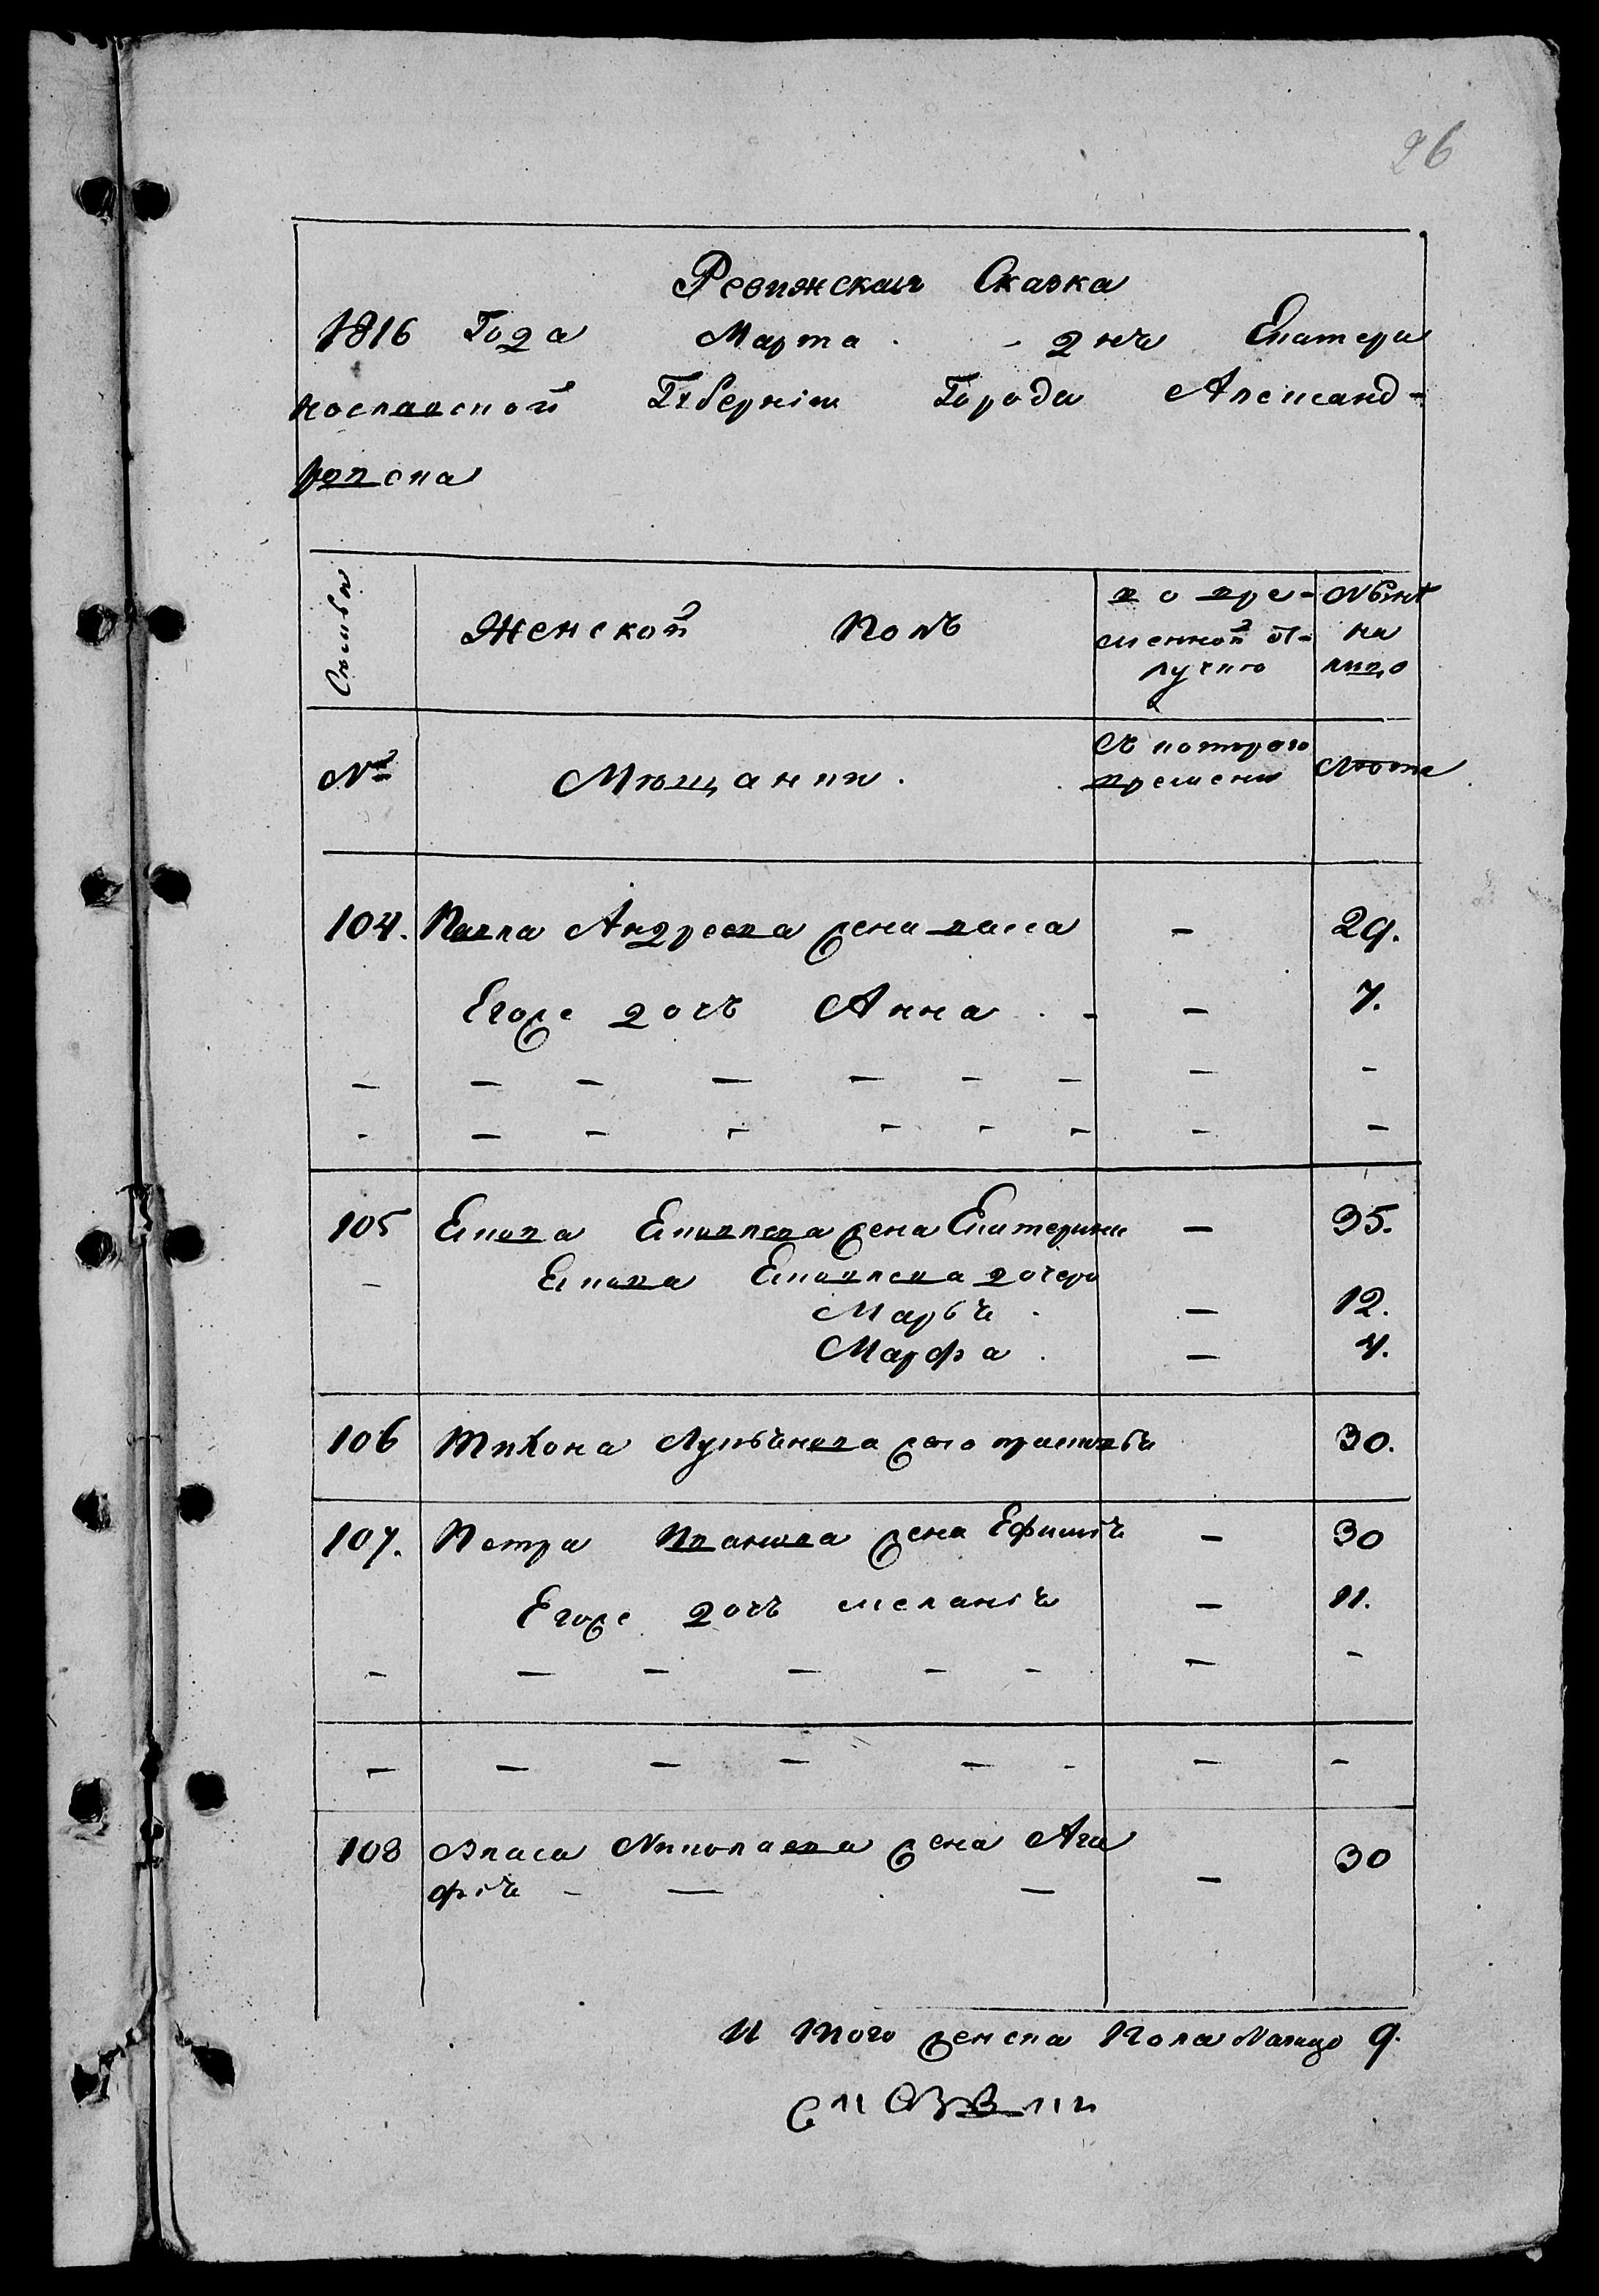 26
Ревижская Сказка
1816 Года Марта - дня Екатери
нославской Губерніи Города Александ-
ровска
Семьи
Женской Полъ
во вре-
менной от-
лучкѣ
Нынѣ
на
лицо
№
Мющанки.
Съ котораго
времени
Лѣта
104. Павла Андреева жена васса - 29.
Егоже дочь Анна - - 7.
- - - - - - - - -
- - - - - - - - -
105 Якова Яковлева жена Екатерина - 35.
- Якова Яковлева дочери
Марья - 12.
Марфа - 4.
106 Тихона Лукьянова жена 30.
107. Петра Иванова жена Ефимія - 30
Егоже дочь меланія - 11.
- - - - - - - -
- - - - - - - -
108 Власа Николаева жена Ага
фія - - - - 30
И того женска Пола Налицо 9.